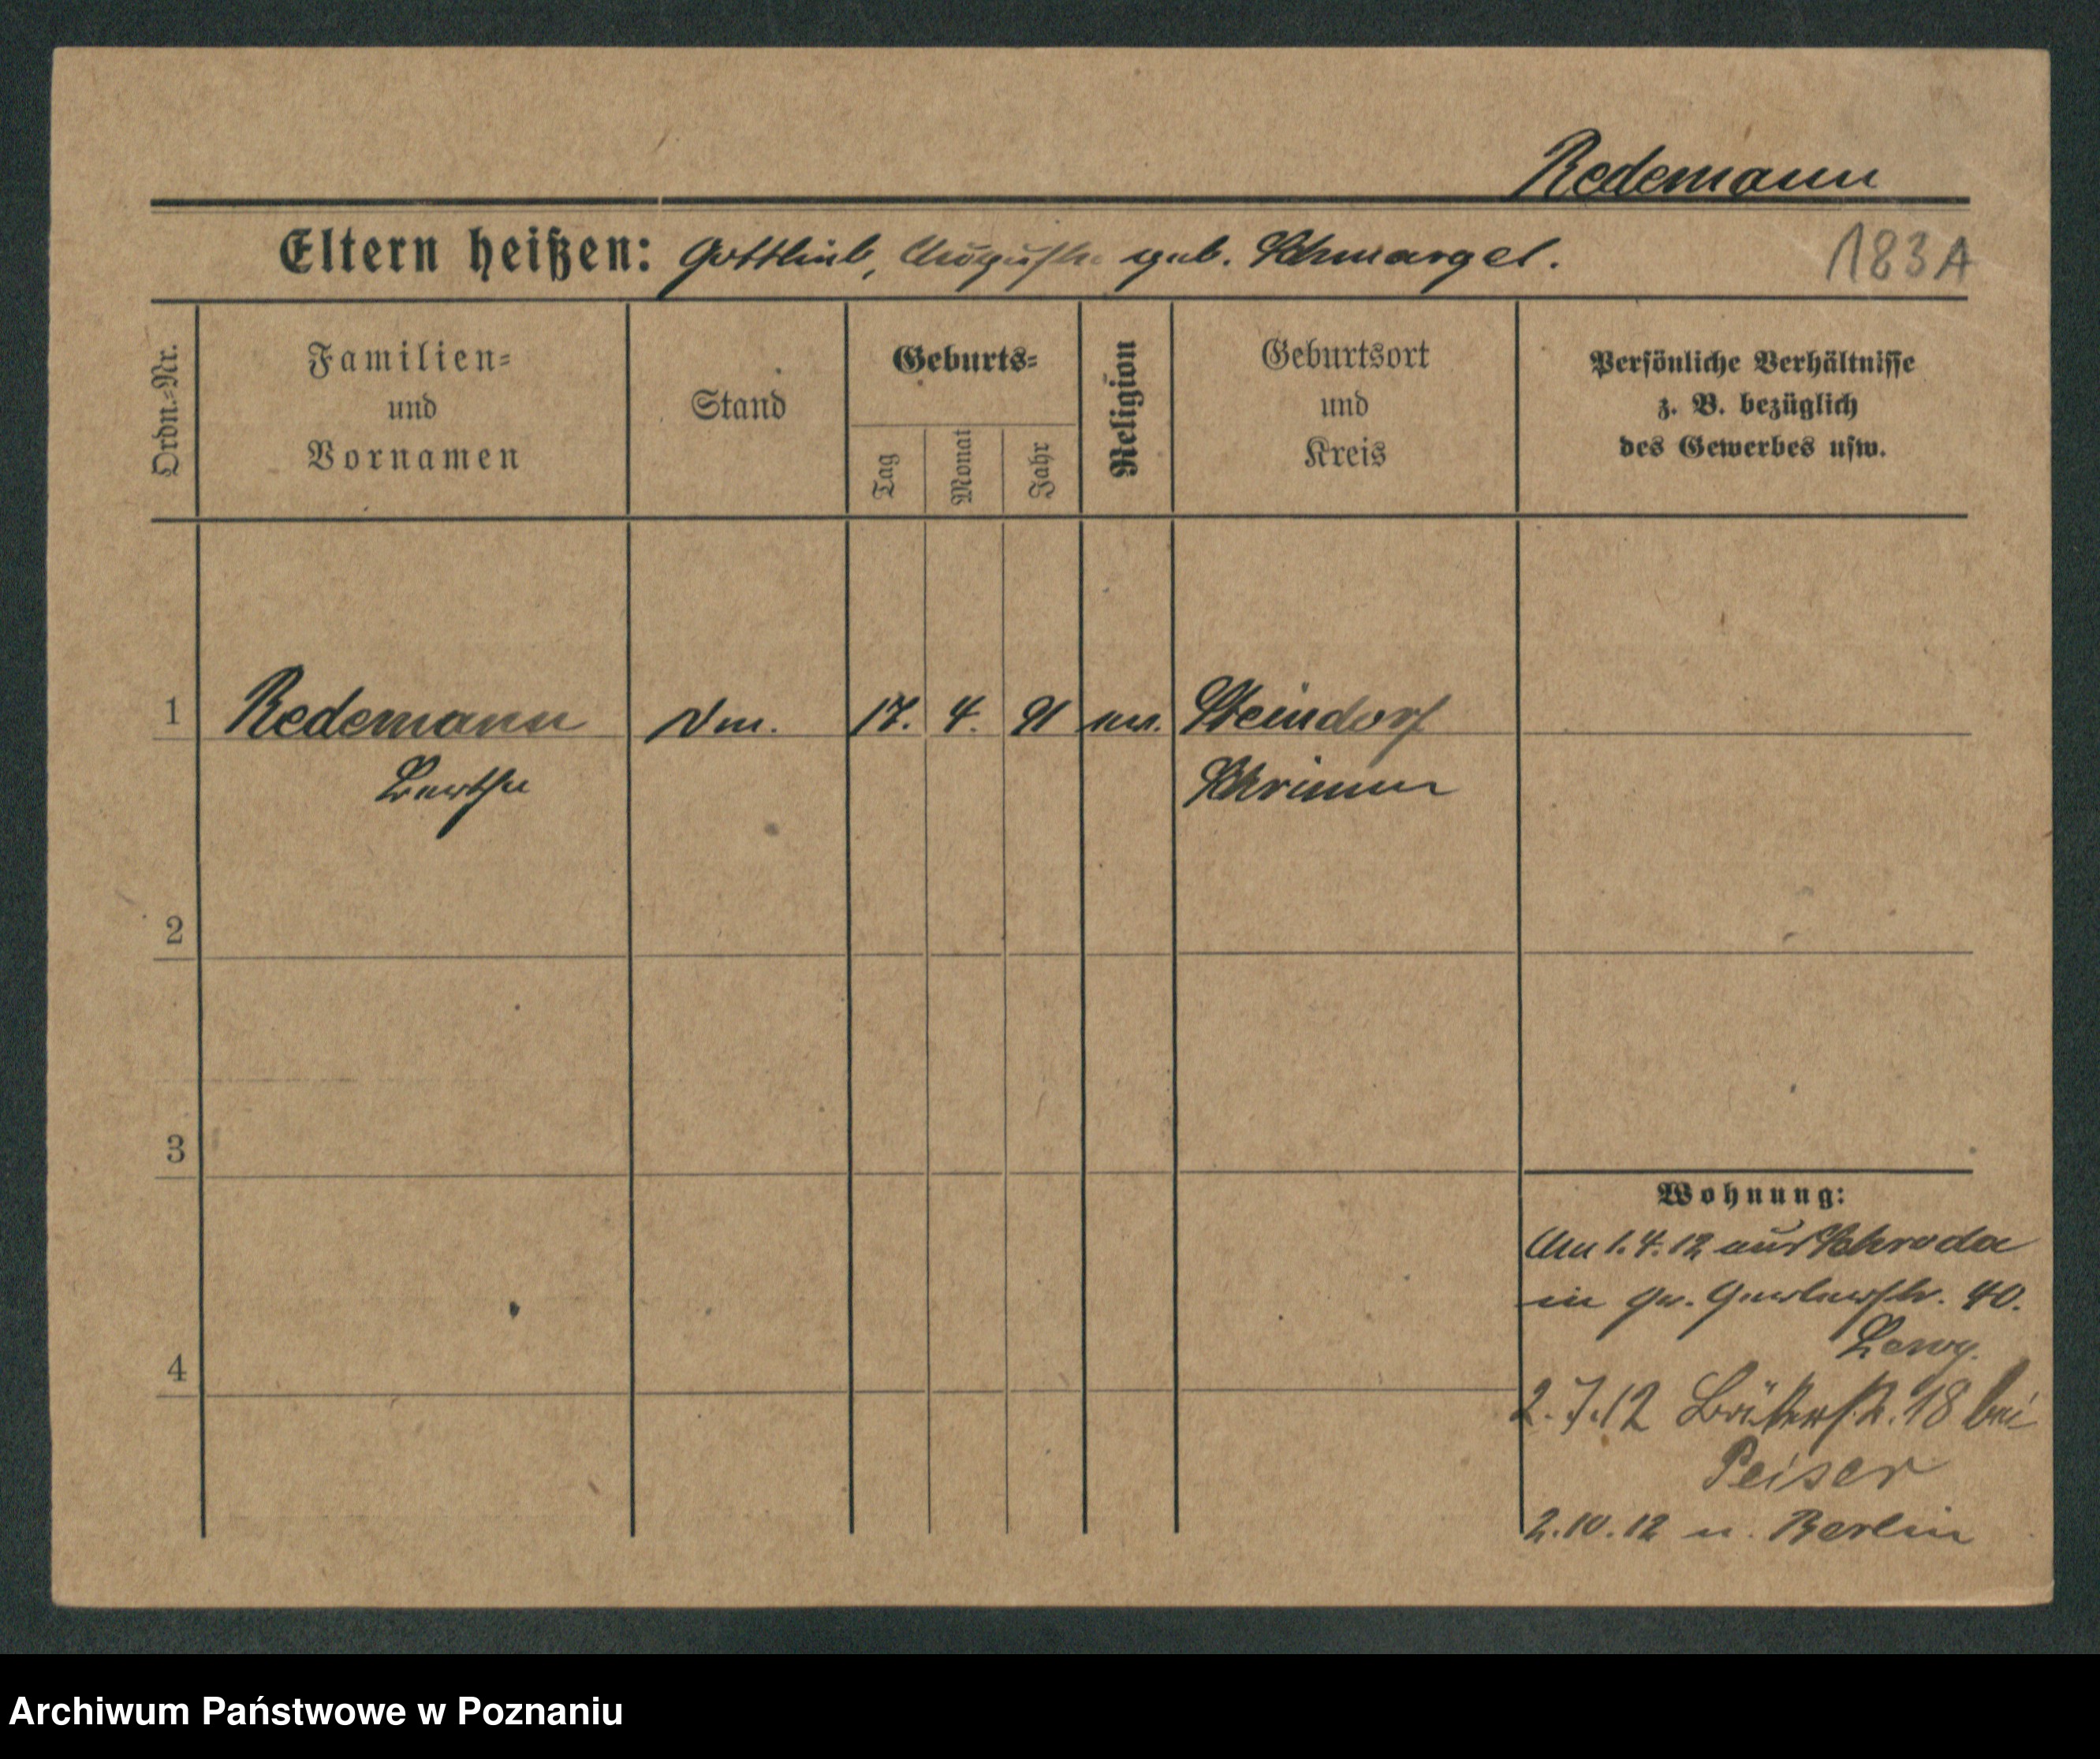 Redemann
Eltern heißen: Gottlieb, Auguste geb. Schmargel.
183A
Ordn.=Nr.
Familien=
und
Vornamen
Stand
Geburts=
Tag
Monat
Jahr
Religion
Geburtsort
und
Kreis
Persönliche Verhältnisse
z. B. bezüglich
des Gewerbes usw.
1 Redemann 17. 4. 91 ev. Steindorf
Bertha Schrimm
2
3
4
Wohnung:
An 1.4.12 aus Schroda
in Gr. Gerberstr. 40.
2.7.12 18 bei
Peiser
2.10.12 n. Berlin
Archiwum Państwowe w Poznaniu